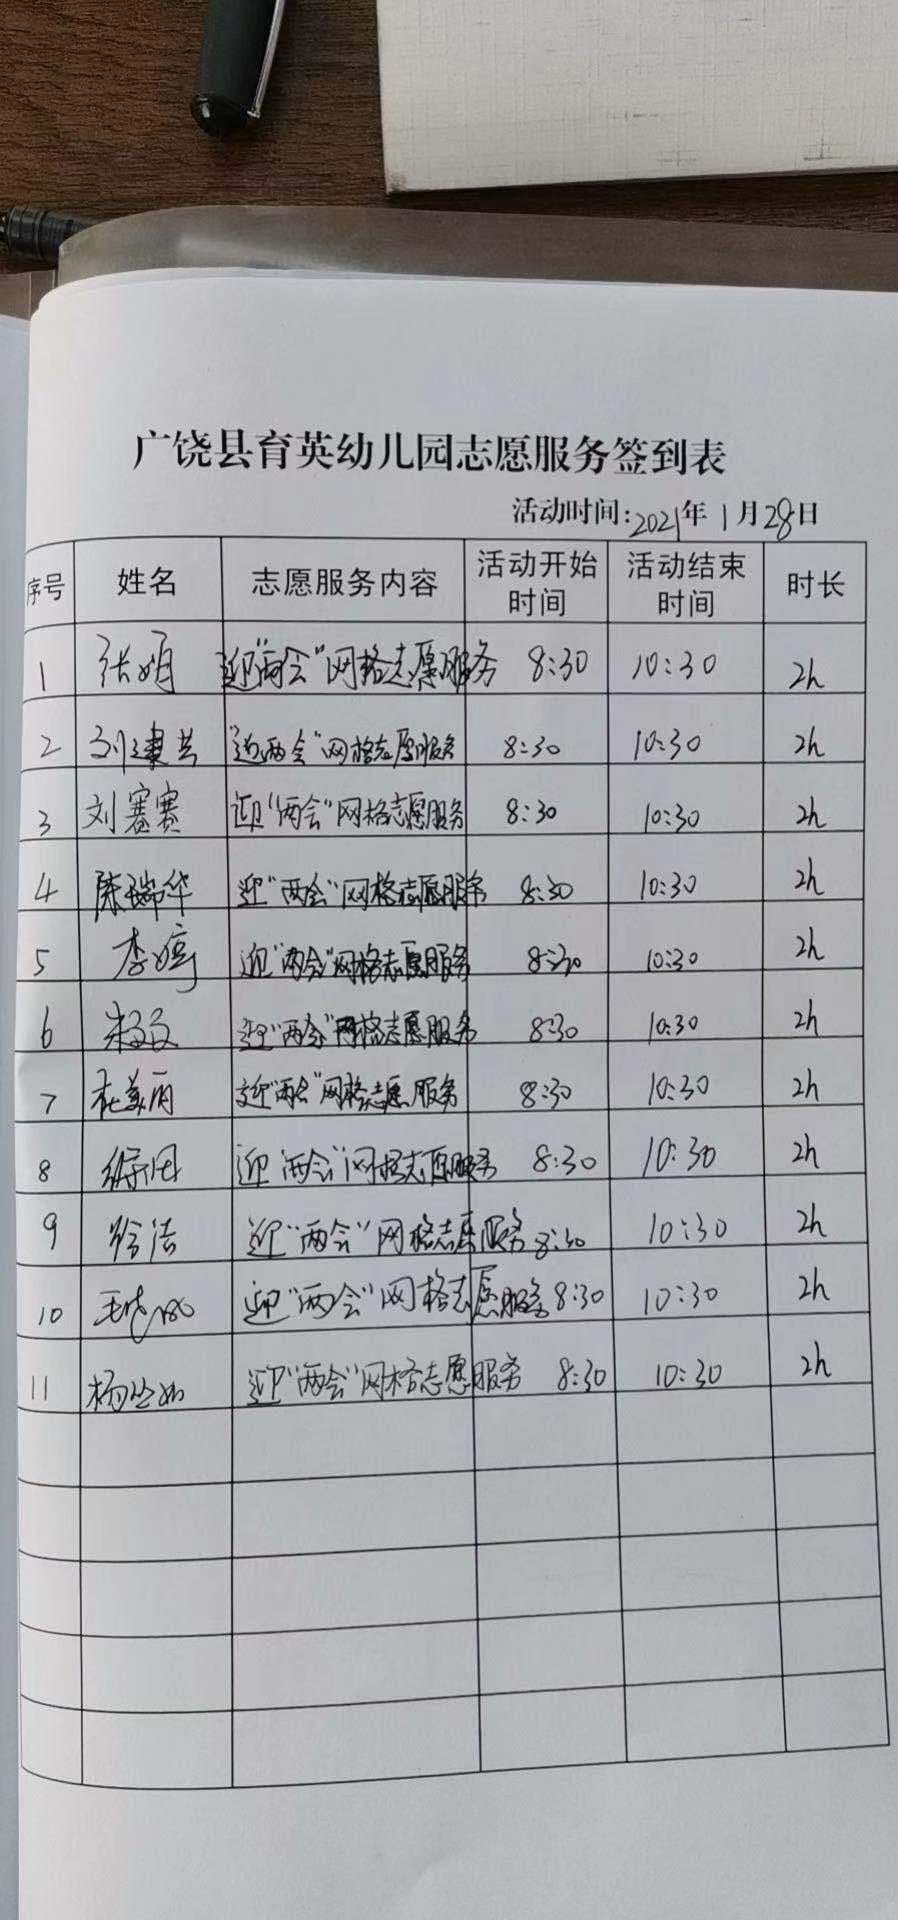 广饶县育英幼儿园志愿服务签到表
活动时间:2021年1月28日
序号 姓名 志愿服务内容 活动开始时间 活动结束时间 时长
1 张娟 迎"两会"网格志愿服务 8:30 10:30 2h
2 刘建芸 迎"两会"网格志愿服务 8:30 10:30 2h
3 刘赛赛 迎"两会"网格志愿服务 8:30 10:30 2h
4 陈瑞华 迎"两会"网格志愿服务 8:30 10:30 2h
5 李婷 迎"两会"网格志愿服务 8:30 10:30 2h
6 迎"两会"网格志愿服务 8:30 10:30 2h
7 杜美丽 迎"两会"网格志愿服务 8:30 10:30 2h
8 迎"两会"网格志愿服务 8:30 10:30 2h
9 徐洁 迎"两会"网格志愿服务 8:30 10:30 2h
10 迎"两会"网格志愿服务 8:30 10:30 2h
11 杨 迎"两会"网格志愿服务 8:30 10:30 2h